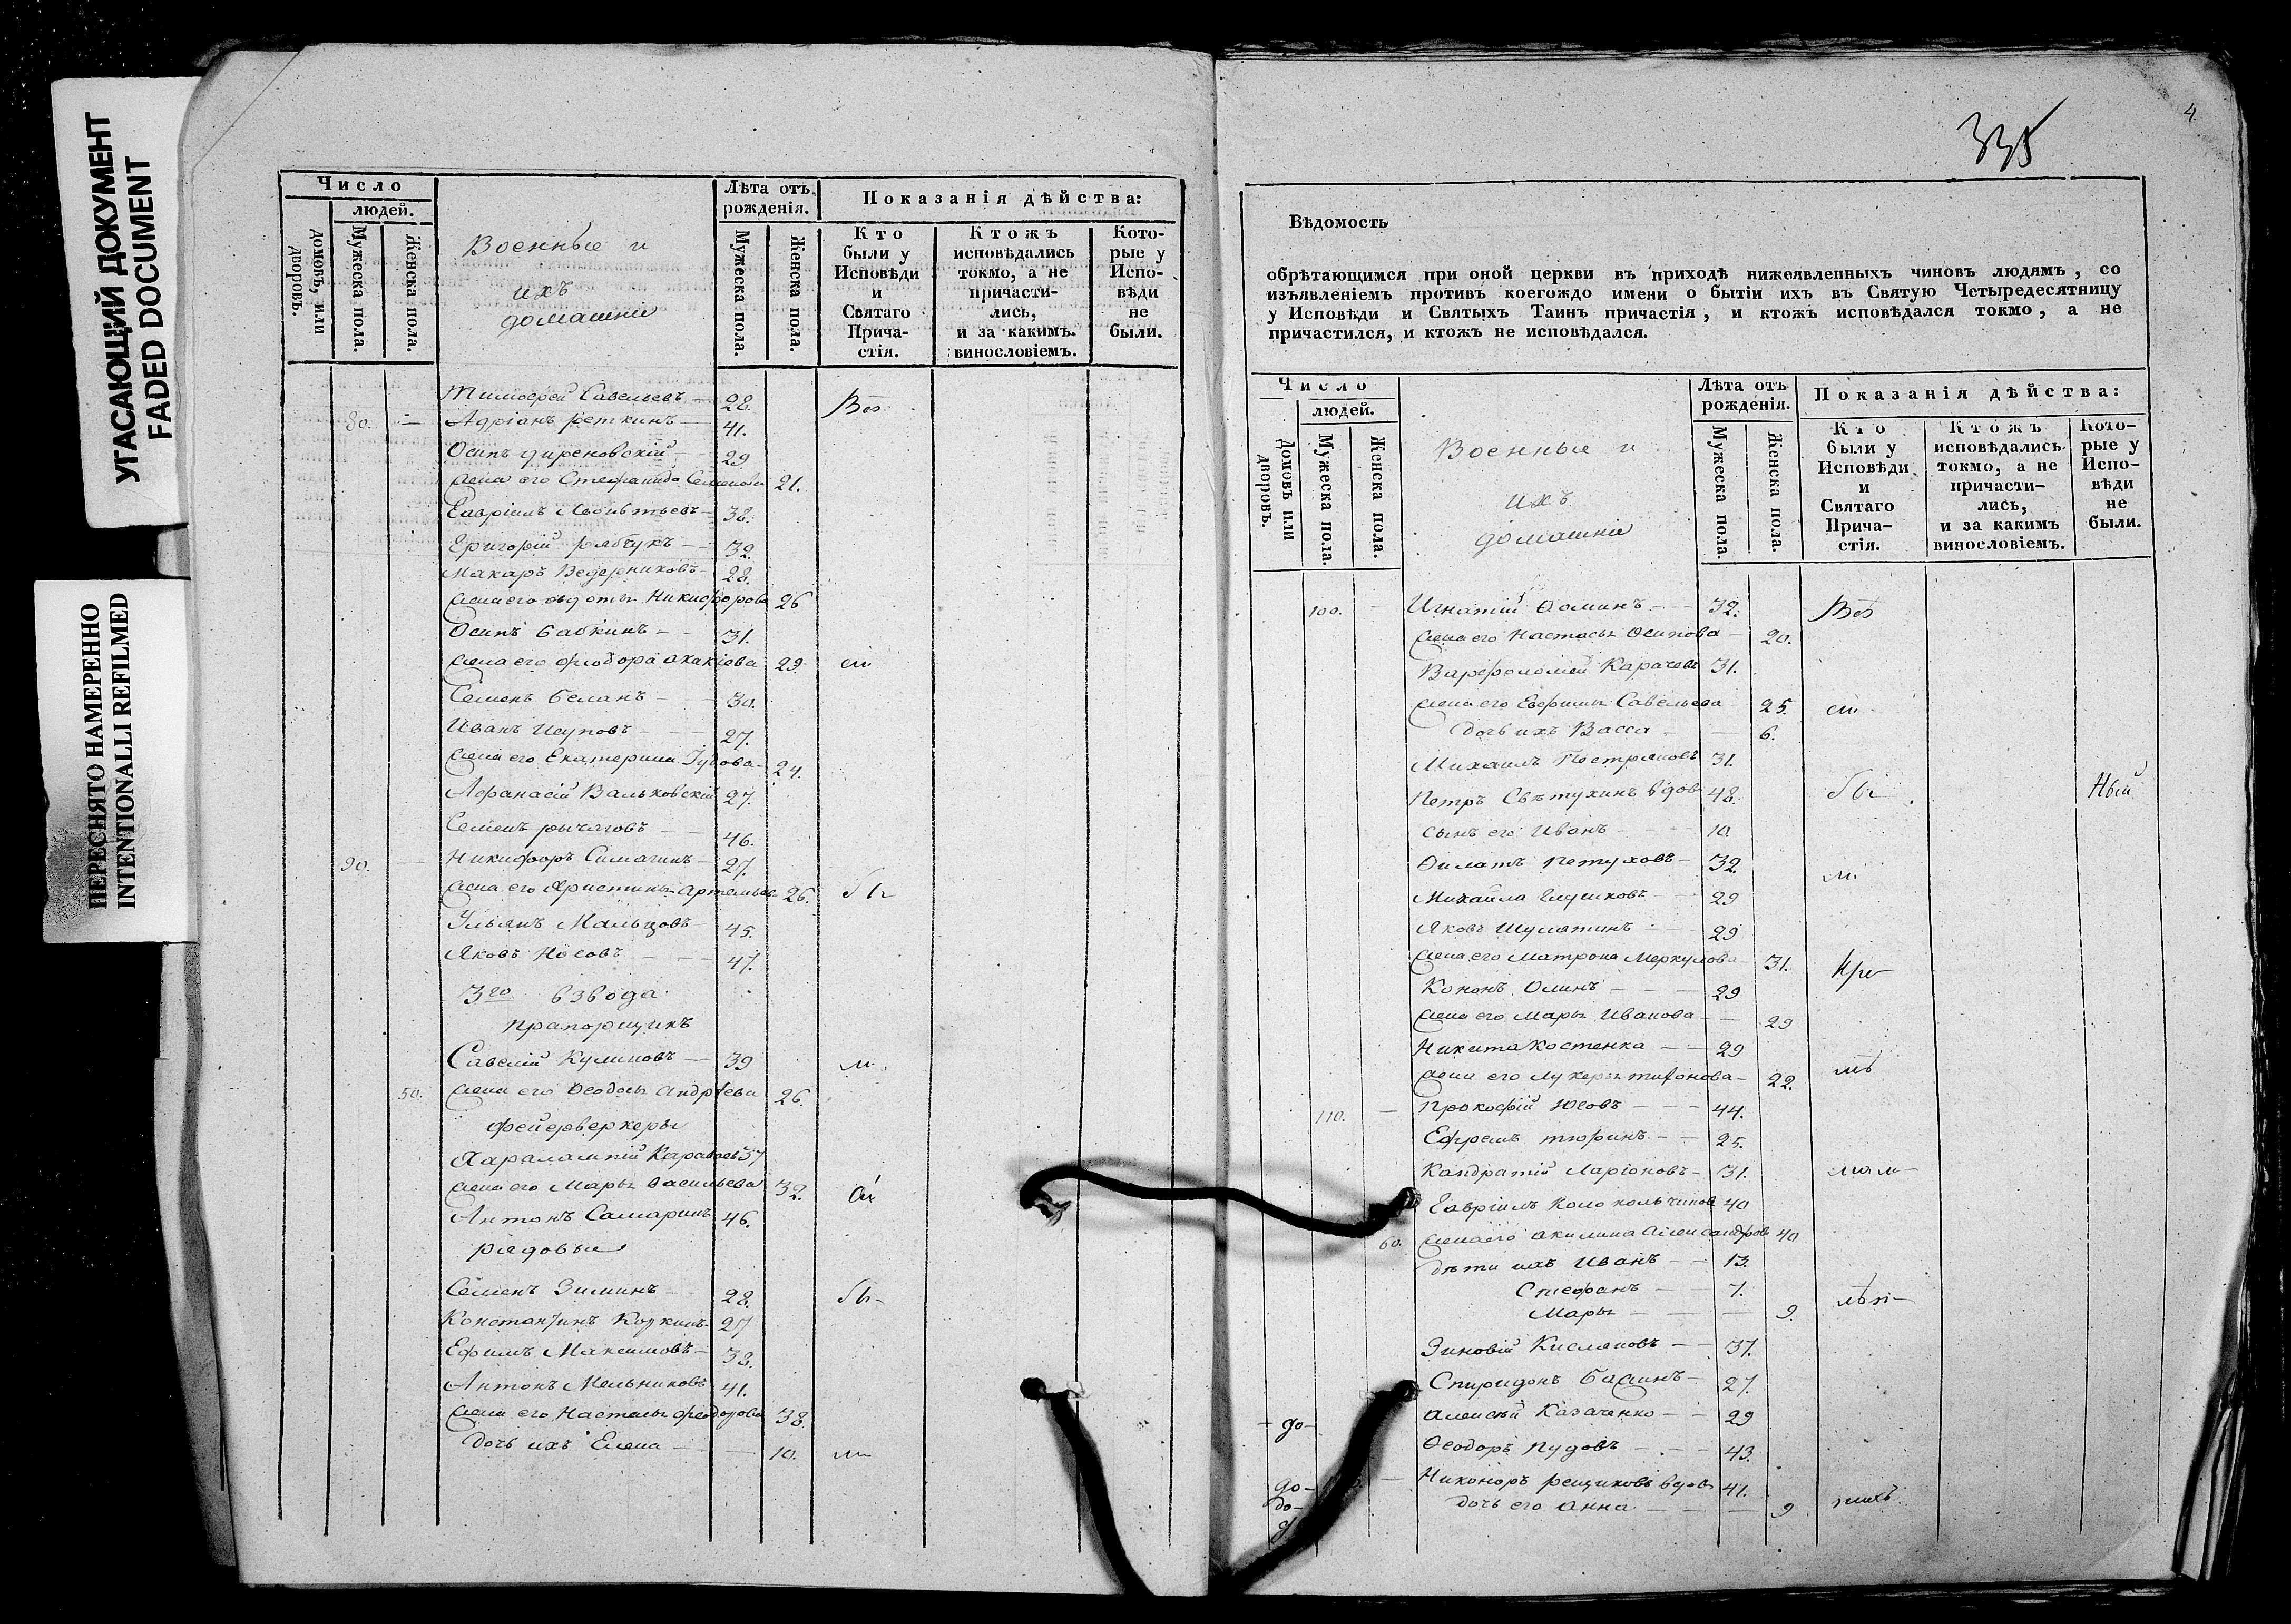 УГАСАЮЩИЙ ДОКУМЕНТ
FADED DOCUMENT
ПЕРЕСНЯТО НАМЕРЕННО
INTENTIONALLI REFILMED
Число
людей.
домовъ, или дворовъ.
Мужеска пола.
Женска пола.
Военные и
ихъ
домашніе
Лѣта отъ рожденія.
Мужеска пола.
Женска пола.
Показанія дѣйства:
Кто были у Исповѣди и Святаго Прича-стія.
Ктожъ исповѣдались токмо, а не причасти-лись, и за какимъ. винословіемъ.
Кото-рые у Испо-вѣди не были.
Тимофей Савельевъ 28. Всѣ
80. Адріанъ Реткинъ 41.
Осипъ 29
Жена его Стефанида Семенова 21.
Гавріилъ Леонтьевъ 38.
Григорій Рябчукъ 32.
Макаръ Ведерниковъ 28.
Жена его Евдотья Никифорова 26
Осипъ Бабкинъ 31.
Жена его Федора Акакіова 29. сіи
Семенъ Беланъ 30.
Иванъ Исуповъ 27.
Жена его Екатерина 24.
Афанасій Вальковскій 27.
Семенъ Рычаговъ 46.
90. Никифоръ Симагинъ 27.
Жена его Христинья Артемьева 26. бы
Ульянъ Мальцовъ 45.
Яковъ Носовъ 47.
3го взвода
прапорщикъ
Савелій Куликовъ 39 ли
50. Жена его Феодосья Андреева 26.
фейерверкеры
Харалампій Караваевъ 37
Жена его Марья Васильева 32.
Антонъ Самаринъ 46.
рядовые
Семенъ Зиминъ 28. бы
Константинъ 27
Ефимъ Максимовъ 38.
Антонъ Мельниковъ 41.
Жена его Настасья Феодорова 38.
дочь ихъ Елена 10. ли
335
4
Вѣдомость
обрѣтающимся при оной церкви въ приходѣ нижеявленныхъ чиновъ людямъ, со
изъявленіемъ противъ коегождо имени о бытіи ихъ въ Святую Четыредесятницу
у Исповѣди и Святыхъ Таинъ причастія, и ктожъ исповѣдался токмо, а не
причастился, и ктожъ не исповѣдался.
Число
людей.
Домовъ или дворовъ.
Мужеска пола.
Женска пола.
Военные и
ихъ
домашніе
Лѣта отъ рожденія.
Мужеска пола.
Женска пола.
Показанія дѣйства:
Кто были у Исповѣди и Святаго Прича-стія.
Ктожъ исповѣдались токмо, а не причасти-лись, и за какимъ винословіемъ.
Кото-рые у Испо-вѣди не были.
100. Игнатій Фоминъ 32. Всѣ
Жена его Настасья Осипова 20.
Варфоломей Карачевъ 31.
Жена его Ефимья Савельева 25. сіи
дочь ихъ Васса 6.
Михаилъ Постряковъ 31.
Петръ Свѣтухинъ вдов 48. бы
сынъ его Иванъ 10.
Филатъ Петуховъ 32. ли
Михайла 29
Яковъ Шуматинъ 29
Жена его Матрона Меркулова 31.
Кононъ Олинъ 29
Жена его Марья Иванова 29
Никита Костенка 29
Жена его Лукерья Тихонова 22.
110. Прокофій Юсовъ 44.
Ефремъ Тюринъ 25.
Кандратій Ларіоновъ 31.
Гавріилъ Колокольчиков 40
60. Жена его Акилина Александрова 40
дѣти ихъ Иванъ 13.
Стефанъ 7.
Марья 9.
Зиновій Кисляковъ 37.
Спиридонъ Бажинъ 27.
до Алексѣй Казаченко 29
Феодоръ Пудовъ 43.
до Никоноръ Рещиковъ вдов 41.
до дочь его Анна 9